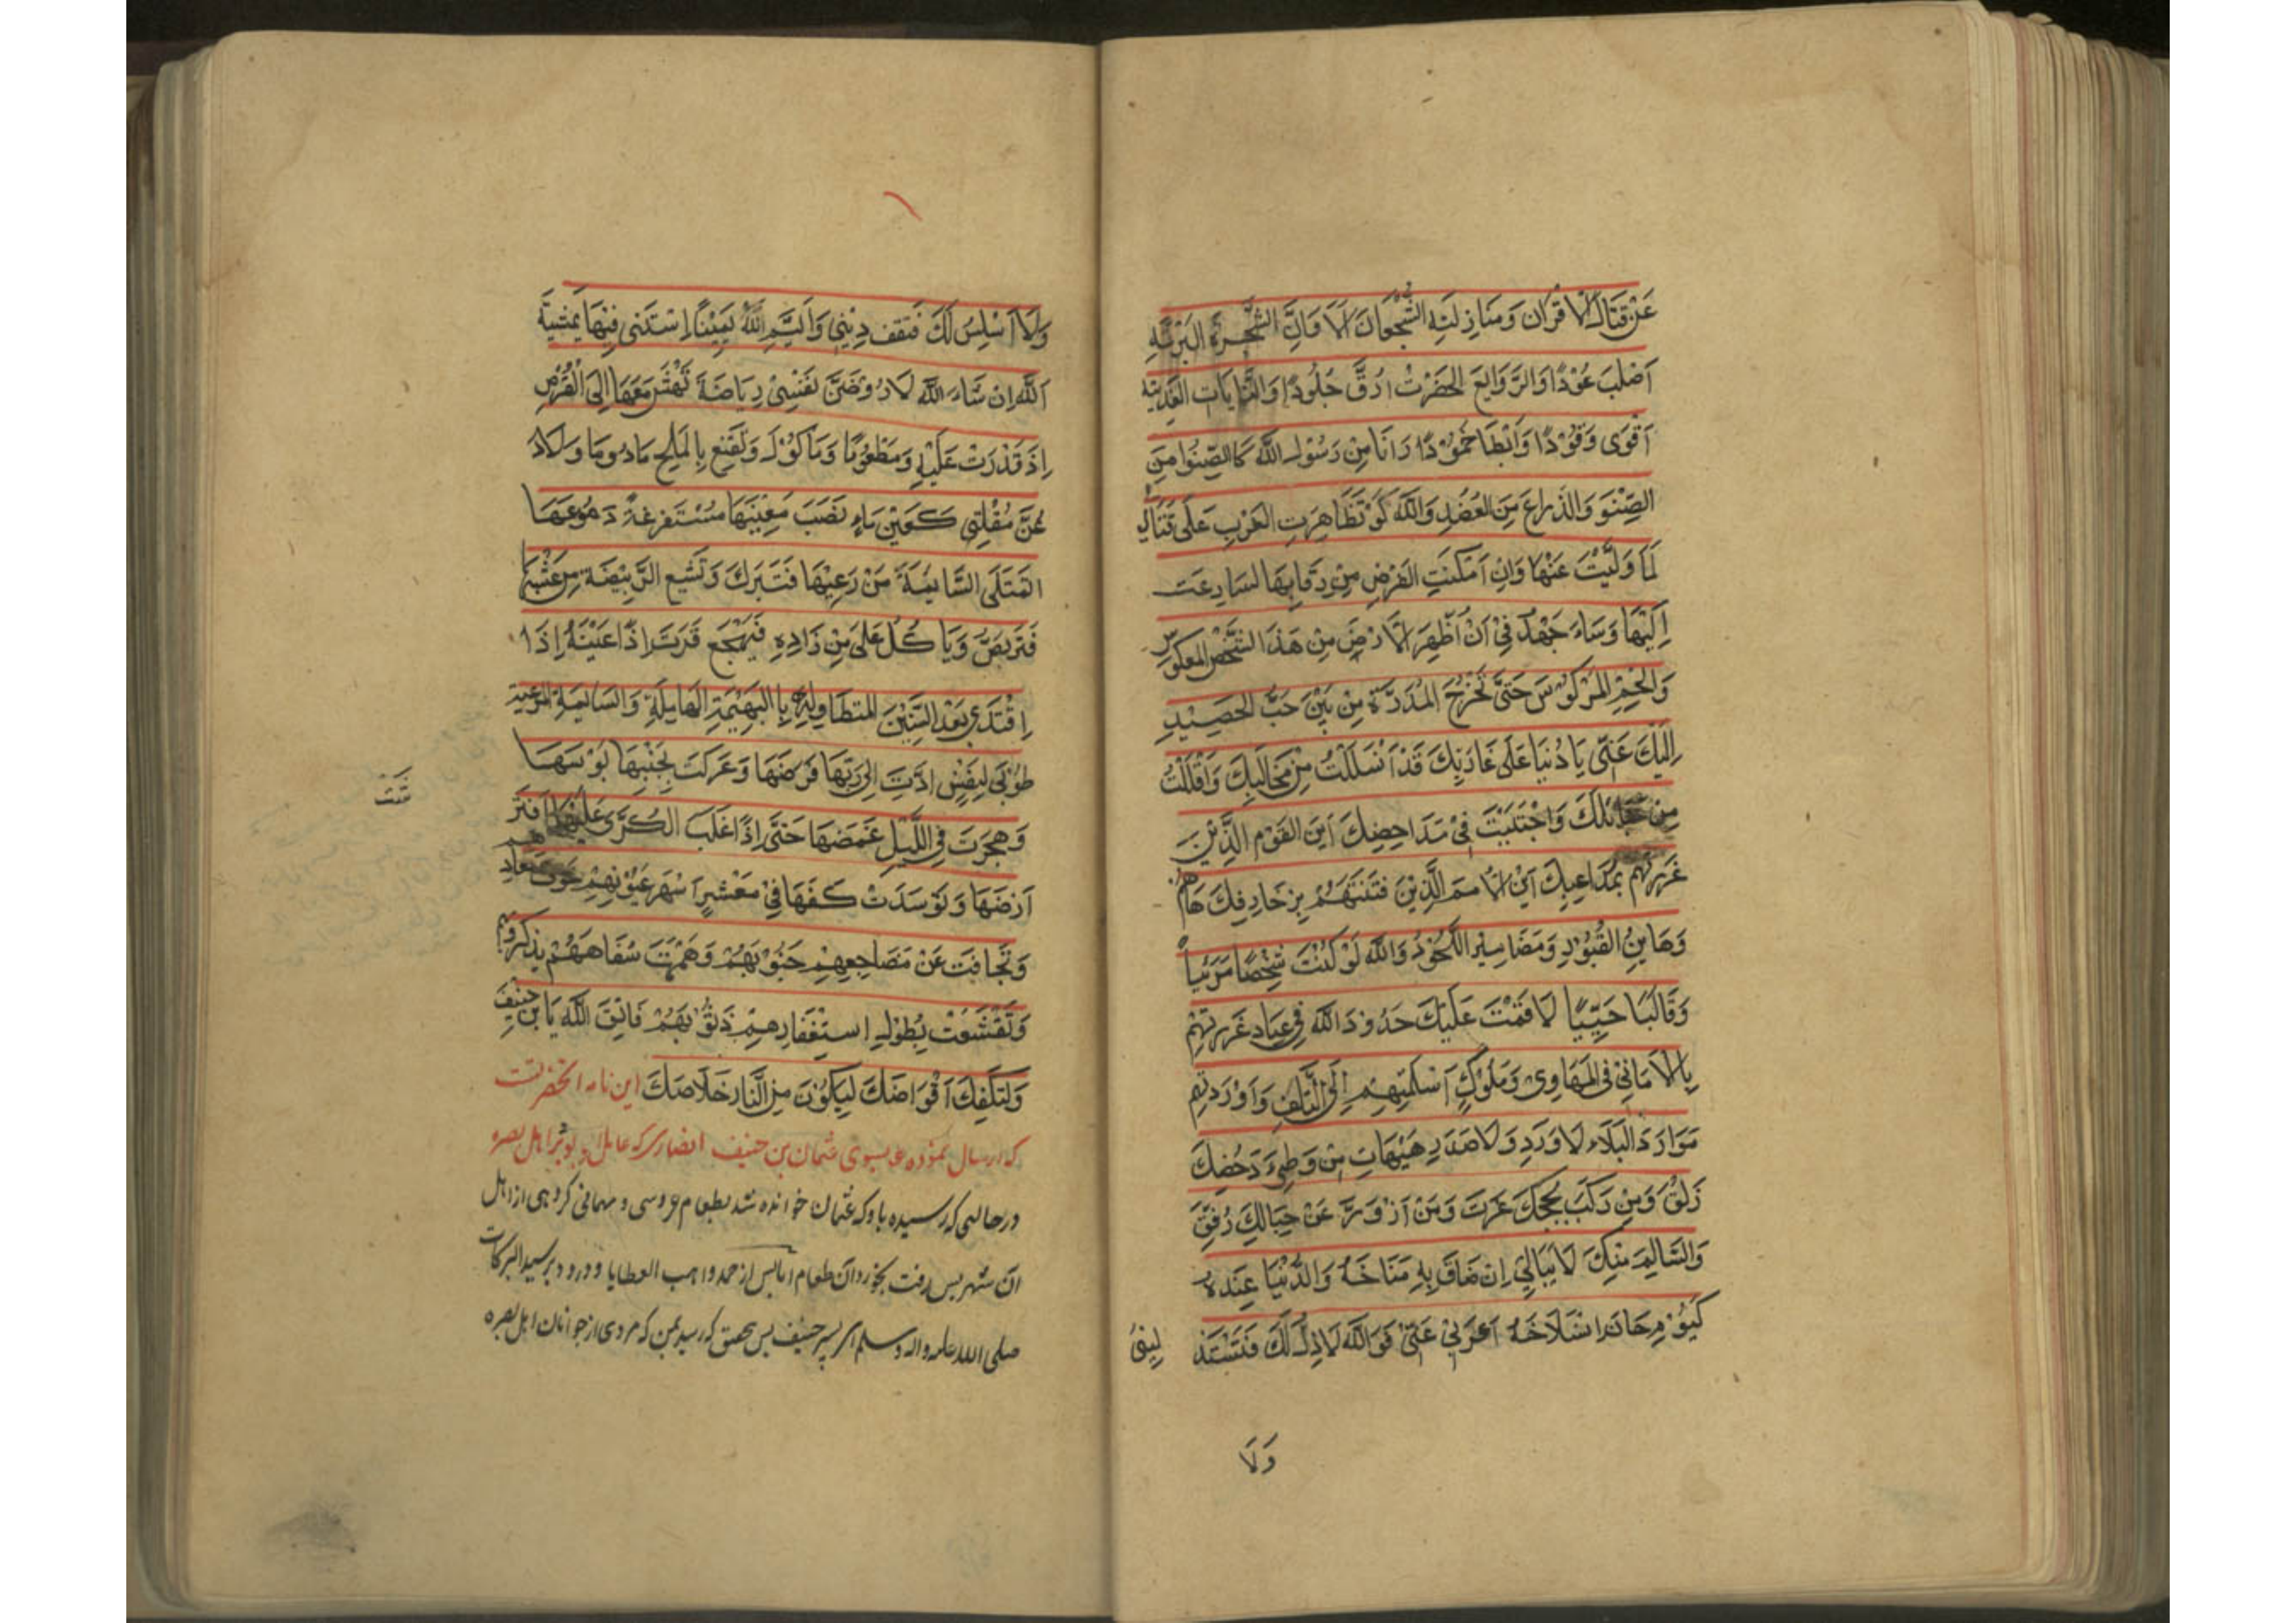 عَنْ قِتَالِ الْاَقْرَان وَمَنَازِلَتِهِ الشُّجْعَانَ اَلَا وَاِنَّ الشَّجَرَةَ البَرِّیَّهِ
اَصْلَبَ عُوْدًا وَالرَّوَایِعَ الخَضَرْتُ اَرَقَّ جُلُودًا وَالنَّابَات العَدْیَّه
اَقْوَی وَقُوْدًا وَاَبْطَا خُمُوْدًا وَاَنَا مِنْ رَسُوْلِ اللّٰه کَالصِّنُوا مِنَ
الصِّنْوَ وَالذِّرَاعَ مِنَ العَضُدِ وَاللّٰهِ لَوْ تَظَاهِرَتِ العَرَبِ عَلَی قَتَالِی
لَمَا وَلَّیْتَ عَنْهَا وَاِنْ اَمْکَنَتِ الفُرَصِ مِنْ رِقَابِهَا لسَارعَت
اِلَیْهَا وَسَاءَ جَهْدُ فِیْ اَنْ اُظْهِرَ الْاَرْضَ مِنْ هَذَا الشَّخْصِ المعکوس
وَالجِسْمِ المَرْکُوْسَ حَتَّی تَخْرُجَ المَدَرَّةَ مِنْ بَیْنَ حَبِّ الحَصِیْدِ
اِلَیْکَ عَنِّی یَا دُنْیَا عَلَی غَارَبِکَ قَدْ اَنْسَلَلْتُ مِنْ مَخَالِبِکَ وَاَفْلَلْتُ
مِن حَبَائِلَكَ وَاجْتَنَیْتَ فِیْ مَدَاحِضِكَ اَیْنَ القَوْم الَّذِیْنَ
غَرَرْتُهم بِمَدَاعِبِكَ اَیْنَ الْاُمَمَ الَّذِیْنَ فَتَنْتَهُمْ بِزَخَارِفِكَ هَاهُمْ
وَهَایِنُ القُبُوْرِ وَمَضَامِیْنَ اللُّحُوْدُ وَاللّٰهِ لَوْ کُنْتَ شَخْصًا مَرَئیاً
وَقَالَبًا حَسِّیًا لَاَقَمْتَ عَلَیْكَ حَدُوْدَ اللّٰه فِیْ عِبَاد غَرَرْتِهِمْ
بِالْاَمَانِیْ فِی المَهَاوِی وَمُلُوْكٍ اَسْلَمْتِهِمِ اِلَی التَّلَفِ وَاَوْرَدتِهِم
مَوَارَدَ البَلَاءِ لَا وَرَدِ وَلَا صَدَرٍ هَیْهَاتِ مِنْ وَطِیءَ دَحْضِكَ
زَلَقُ وَمِنْ رَکَبَ لُجَجَكَ غَرَقَ وَمَنْ اَزْوَرَّ عَنْ حِبَالِكَ وُفِقِّ
وَالسَّالِمَ مِنْكِ لَا یُبَالِیْ اِنْ ضَاقَ بِهِ مَنَاخَهُ وَالدُّنْیَا عِنْدَهُ
کَیَوْمِ حَانَ اِنْسَلَاخَهُ اَعْزُبِیْ عَنِّی فَوَ اللّٰهِ لَا اَذِلُّ لَكَ فَتَسْتَذِ لِیْنِیْ
وَلَا
وَلَا اَسْلِسُ لَكَ فَتَقَف دِیْنِی وَاَیْمُ اللّٰهُ یَمِیْنًا اِسْتَثْنی فِیْهَا بِمَشِیَّةَ
اَللّٰهِ اِن شَاءَ اللّٰهِ لَاَرُوْضَنَّ نَفْسِیْ رِیَاضَةَ تَهْشَ مَعَهَا اِلَی الْقُرْصِ
اِذَ قَدْرَتْ عَلَیْهِ وَمَطْعُوْمًا وَمَاکُوْلَ وَتَقْنِعِ بِالمَلِحِ مَادُوْمَا وَلَاَدَ
عَنَّ مُقْلَتِی کَعَیْنِ مَاءٍ نَضَبَ مَعِیْنِهَا مَسْتَفْرِغَةً دَمُوْعَهَا
اَتَمْتَلَی السَّایِمَةَ مَنْ رَعِیْهَا فَتَبَرَكَ وَتَشْبَعِ الرَّبِیْضَةَ مِنْ عَشْبِهَا
فَتَرْبَضُ وَیَاکُلْ عَلَی مِنِ زَادِهِ فَیَهْجَعِ قَرَتَ اِذًا عَیْنَهُ اِذَا
اِقْتَدَی بَعْدَ السِّنِیْنَ المتطَاوِلَةِ بِاالبَهِیْمَةِ الهَامِلَةِ وَالسَائِمَةِ المرْعِیة
طُوْبَی لِنَفْسٍ اَدَّتَ اِلَی رَبِّهَا فَرَضَهَا وَعَرَکَتَ بِجَنْبِهَا بُوْسَهَا
وَهجَرَتَ فِی اللَّیْلِ غَمَضَهَا حَتَّی اِذَا غَلَبَ الکَرَی عَلَیْهَا افْتَرَ
اَرْضَهَا وَتَوَسَدَتْ کَفَهَا فِیْ مَعْشَرٍ اَسْهَرَ عُیُوْنِهِمْ خَوْفَ مَعَادِهِم
وَتَجَافَتَ عَنْ مَضَاجِعِهِمْ جَنُوْبَهُمْ وَهَمْهَمَتَ شَفَاهَهُمْ بِذِکْرِ رَبِّهِمْ
وَتَقَشَّعَتْ بُطُوْلِ اسْتِغْفَارِهِمْ ذَنُوْبَهُمْ فَاتِّقَ اللّٰهَ یَا بْنَ حَنِیفَ
وَلْتَکْفِكَ اَقْرَاصَكَ لِیَکُوْنَ مِنَ النَّارِ خَلَاصَكَ این نامه انحضرتست
که ارسال نموده بسوی عثمان بن حنیف انصاری که عامل او بود بر اهل بصره
درحالتی که رسیده باو که عثمان خوانده شد بطعام عروسی و مهمانی کروهی از اهل
ان شهر پس رفت بخوردان طعام اما پس از حمد واهب العطایا و درود بر سید البرکات
صلی الله علیه واله وسلم ای پسر حنیف پس بتحقیق که رسید بمن که مردی از جوانان اهل بصره